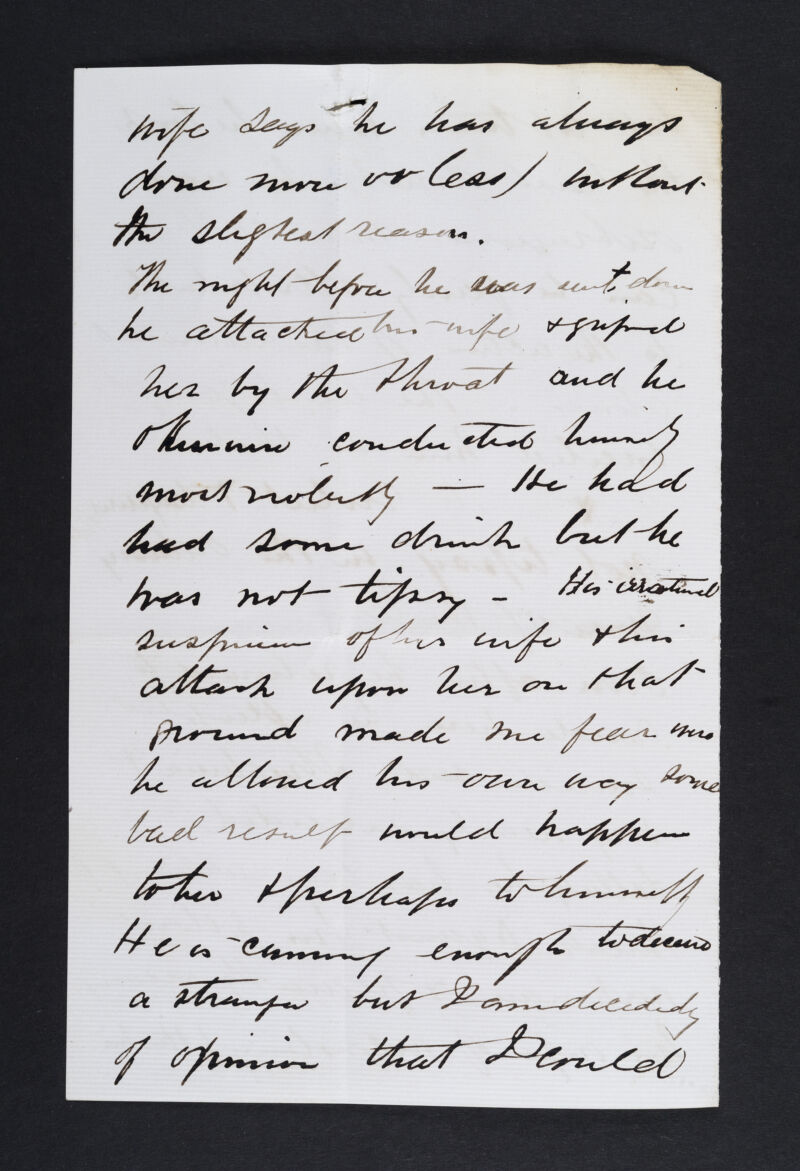 wife says he has always
done more or less) without
the slightest reason.
The night before he was sent down
he attacked his wife & griped
her by the throat and he
otherwise conducted himself
most violently — He had
had some drink but he
was not tipsy – His irrational
suspicion of his wife & his
attack upon her on that
ground made me fear was
he allowed his own way some
bad result would happen
to her & perhaps to himself
He is cunning enough to deceive
a stranger but I am decidedly
of opinion that I could